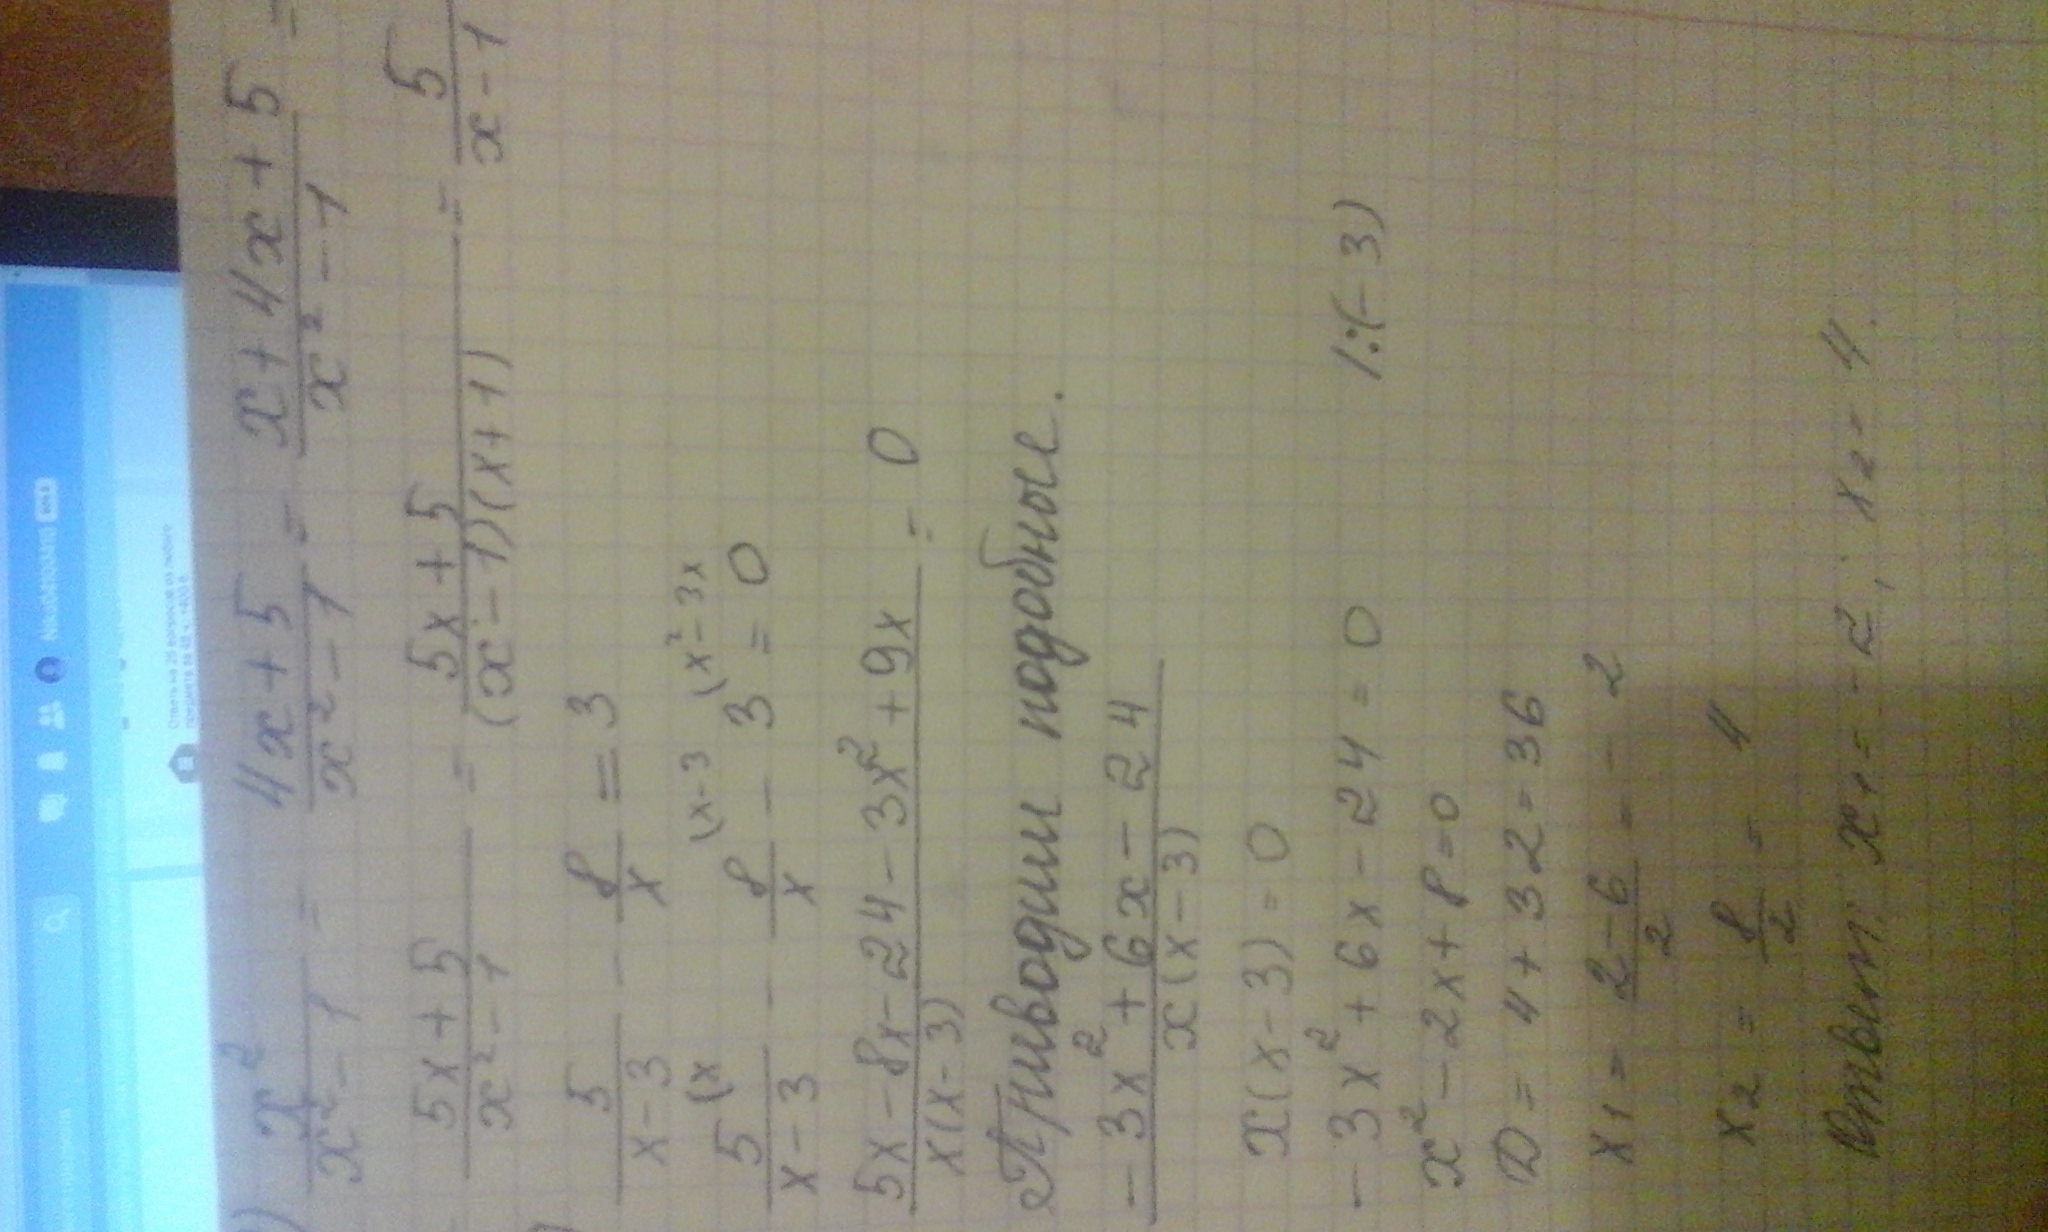 x²/(x²-1) = (4x+5)/(x²-1) = (x+4x+5)/(x²-1) =
= (5x+5)/(x²-1) = (5x+5)/((x-1)(x+1)) = 5/(x-1)
5/(x-3) - 8/x = 3
5(x/(x-3) - 8(x-3/x - 3(x²-3x = 0
(5x-8x-24-3x²+9x)/(x(x-3)) = 0
Приводим подобные.
(-3x²+6x-24)/(x(x-3))
x(x-3)=0
-3x²+6x-24=0 /:(-3)
x²-2x+8=0
D=4+32=36
x1=(2-6)/2=-2
x2=8/2=4
Ответ: x1=-2; x2=4.